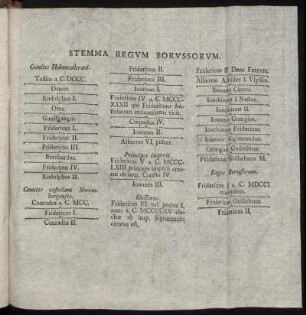 STEMMA REGVM BORVSSORVM.
Comites Hohenzollerani.
Tassilo a C. DCCC.
Danco.
Rodolphus I.
Otto.
Fridericus I.
Fridericus II.
Fridericus III.
Burchardus.
Fridericus IV.
Rodolphus II.
Comites castellani Norim-
bergenses.
Conradus a C. MCC.
Fridericus I.
Conradus II.
Fridericus II.
Fridericus III.
Ioannes I.
Fridericus IV a C. MCCC-
XXXII qui Fridericum Au-
striacum vicit.
Conradus IV.
Ioannes II.
Albertus VI pulcer
Principes imperii.
Fridericus V a C. MCCC-
LXIII princeps imperii
ab imp. Carolo IV.
Ioannes III.
Electores.
Fridericus VI vel potius I,
anno a C. MCCCCXV ele-
ctor ab imp. Sigismundo
creatus est,
Fridericus II Dens Ferreus,
Albertus Achilles I. Vlysses.
Ioannes Cicero.
Ioachimus I Nestor.
Ioachimus II.
Ioannes Georgius.
Ioachimus Fridericus.
Ioannes Sigismundus.
Georgius Guilielmus
Fridericus Guilielmus M.
Reges Borussorum.
Fridericus I a C. MDCCI
Fridericus Guilielmus.
Fridericus II